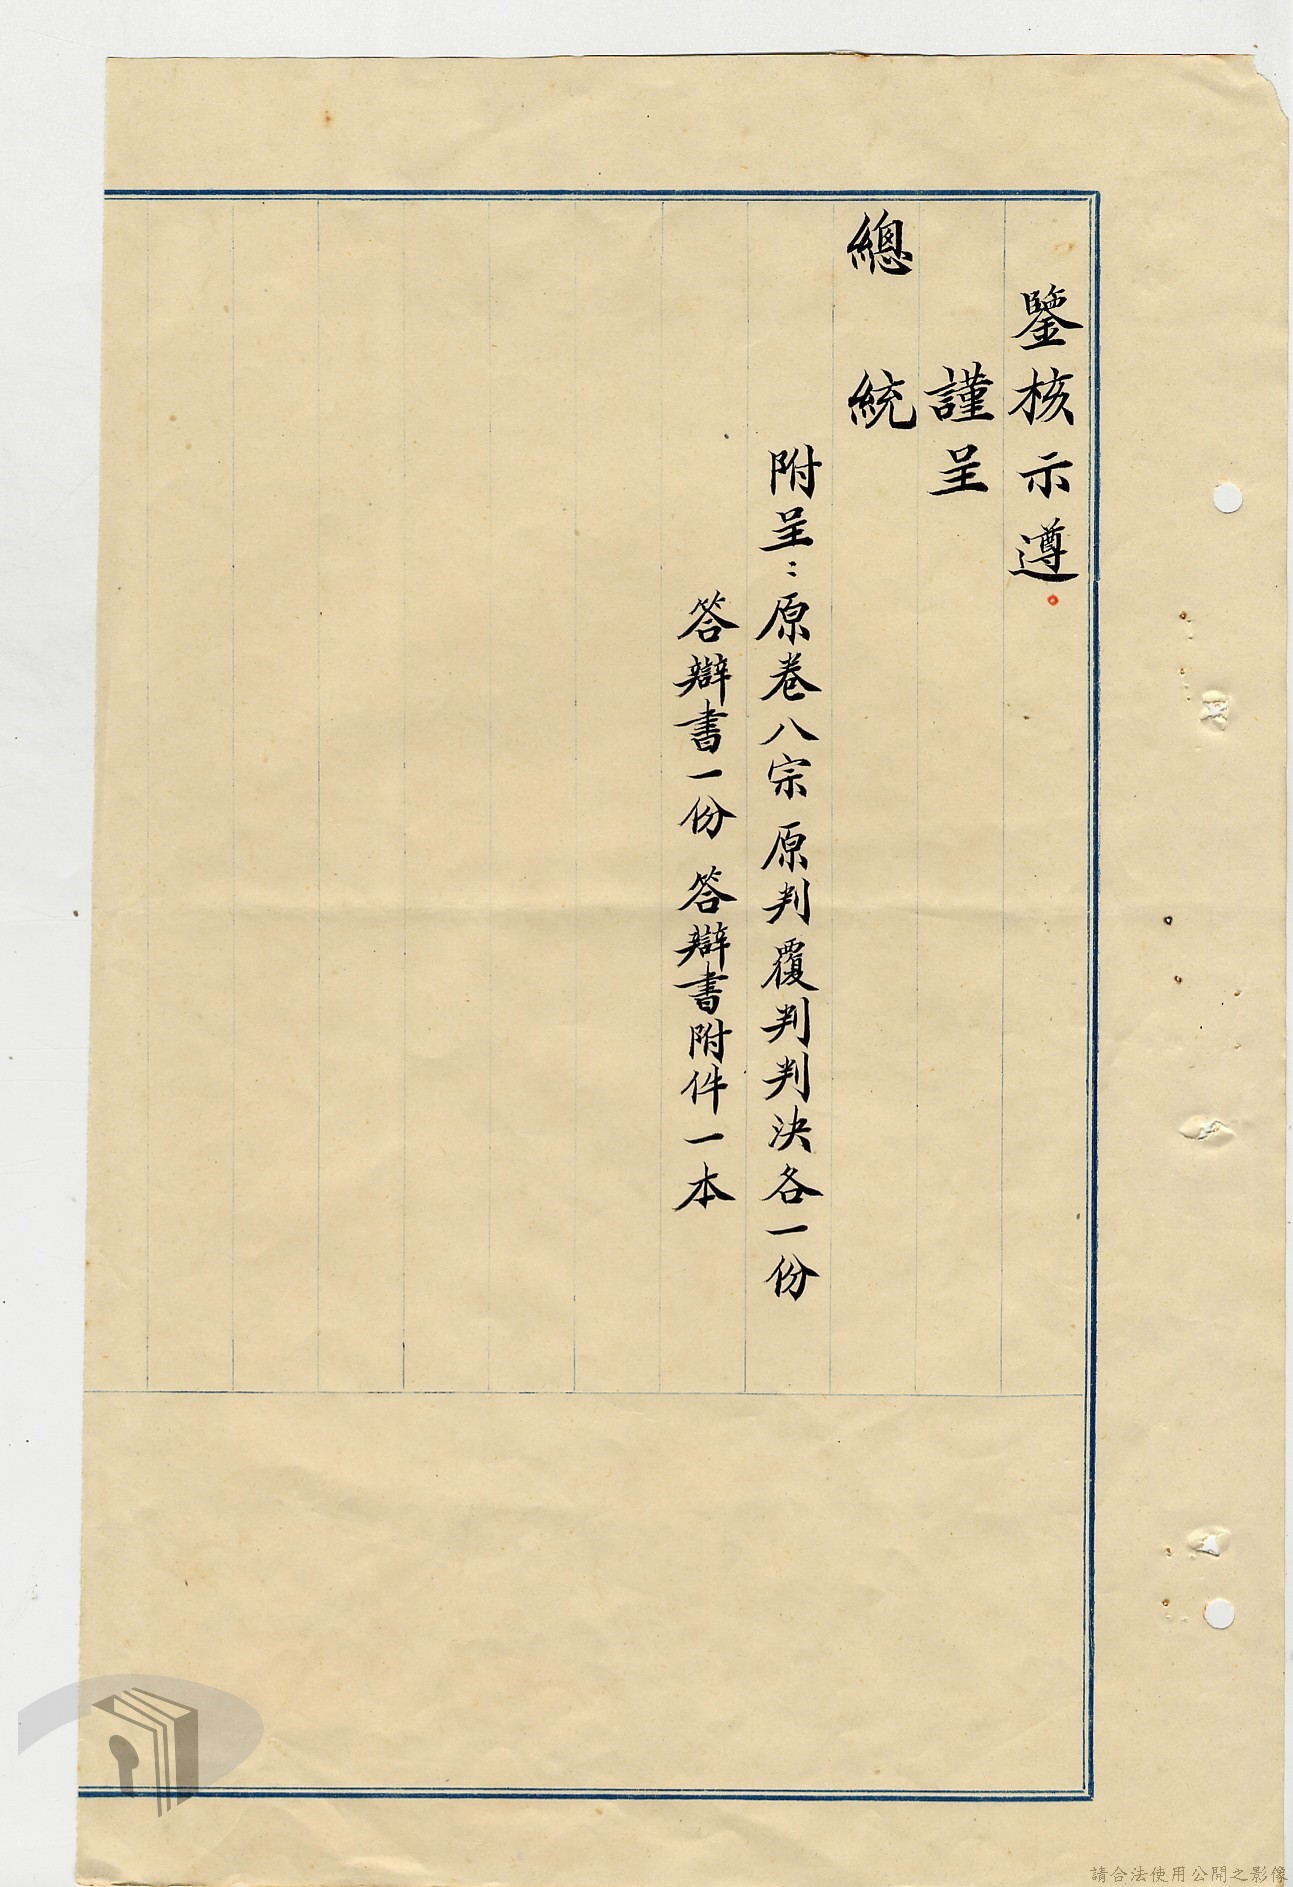 鑒核示遵。
謹呈
總統
附呈：原卷八宗 原判覆判判決各一份
答辯書一份 答辯書附件一本
請合法使用公開之影像